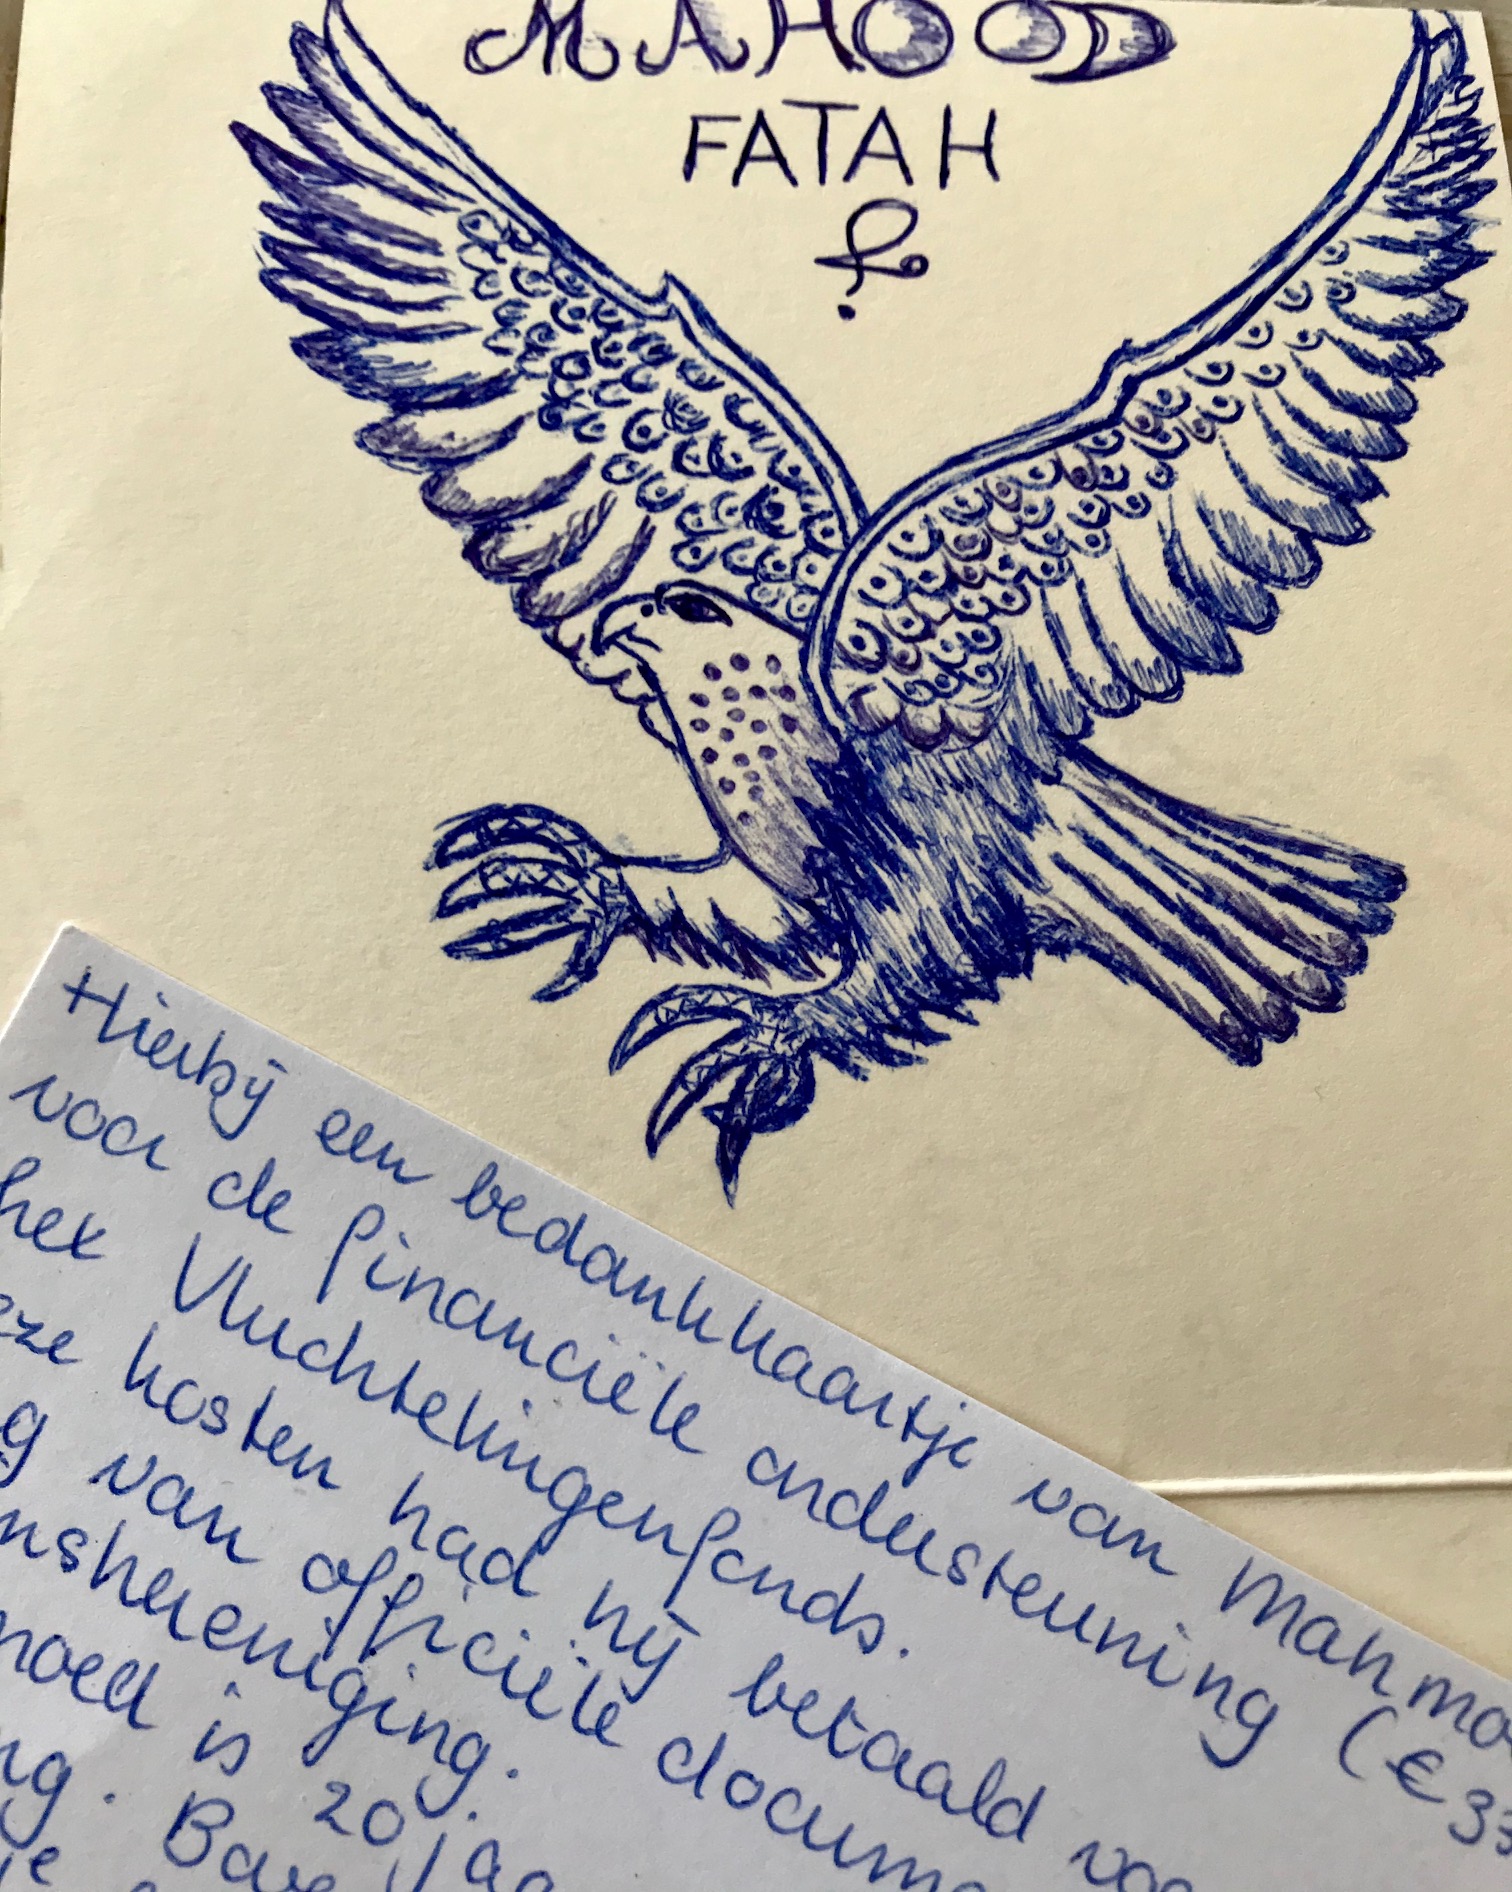 MAHOOD
FATAH
Hierbij een bedankkaartje van Mahmo
voor de financiële ondersteuning (€ 33
het Vluchtelingenfonds.
eze kosten had hij betaald voo
g van officiële docume
nshereniging.
moed is 20 jaa
ng. Bove
je